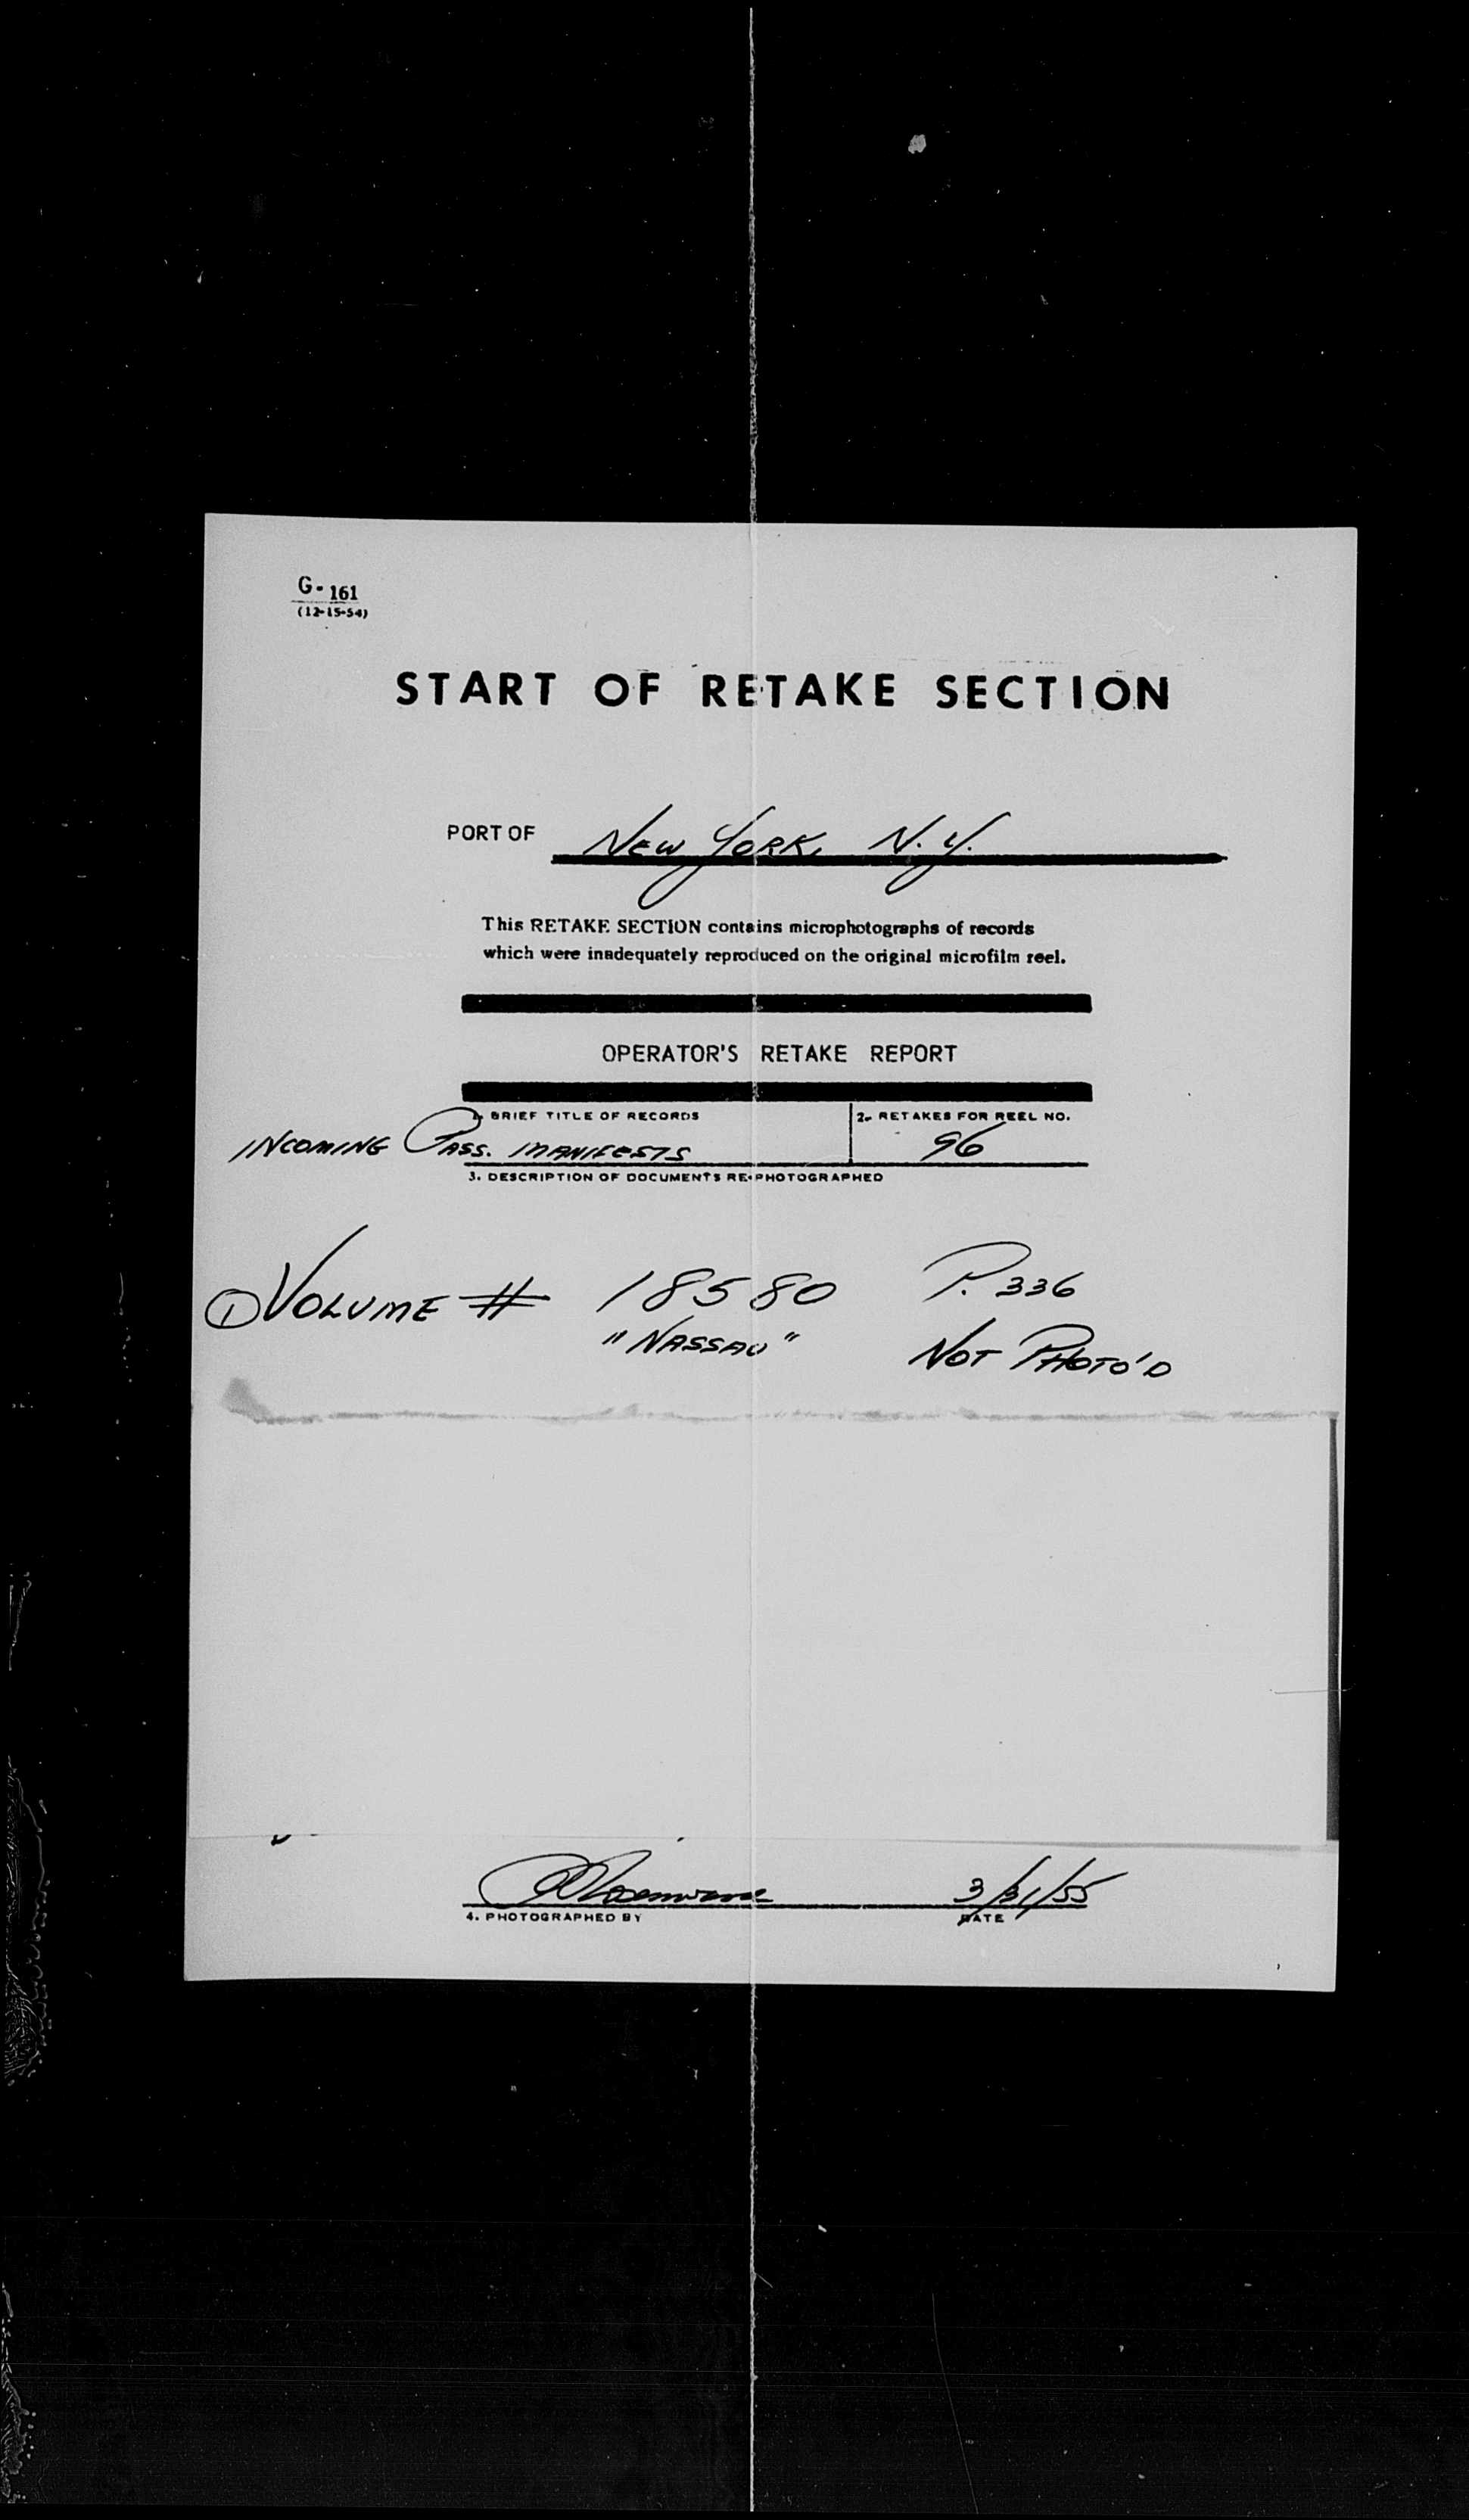 G-161
(12-15-54)
START OF RETAKE SECTION
PORT OF NEW YORK, N.Y.
This RETAKE SECTION contains microphotographs of records
which were inadequately reproduced on the original microfilm reel.
OPERATOR'S RETAKE REPORT
1. BRIEF TITLE OF RECORDS 2. RETAKES FOR REEL NO.
INCOMING PASS. MANIFESTS 96
3. DESCRIPTION OF DOCUMENTS RE-PHOTOGRAPHED
① VOLUME # 18580 P. 336
"NASSAU" NOT PHOTO'D
3/31/55
4. PHOTOGRAPHED BY DATE